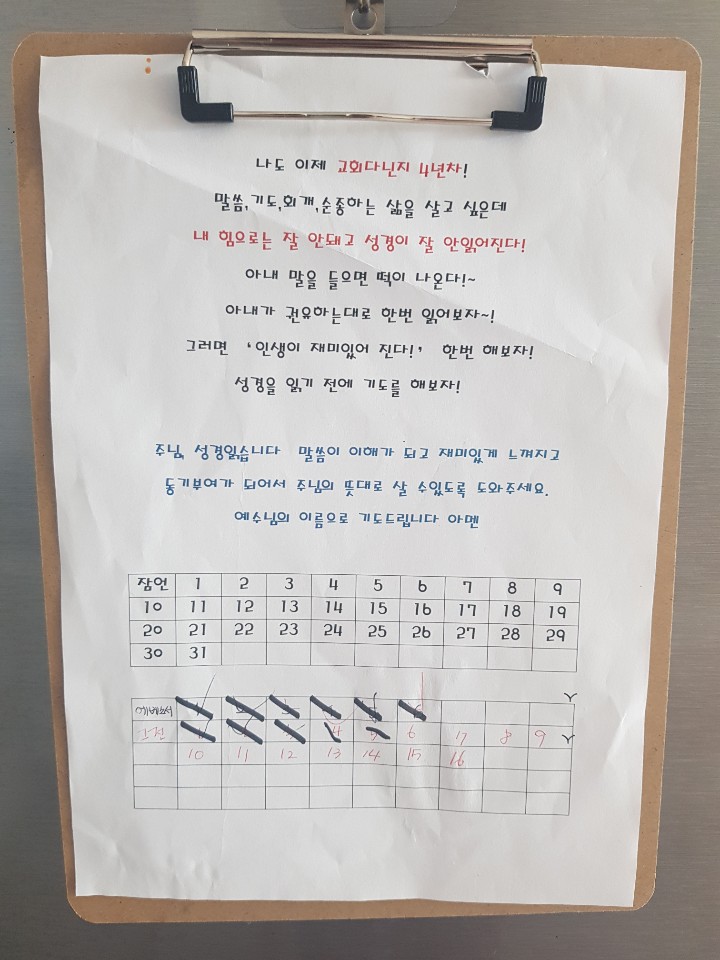 나도 이제 교회다닌지 4년차!
말씀,기도,회개,순종하는 삶을 살고 싶은데
내 힘으로는 잘 안돼고 성경이 잘 안읽어진다!
아내 말을 들으면 떡이 나온다!~
아내가 권유하는대로 한번 읽어보자~!
그러면 '인생이 재미있어 진다!' 한번 해보자!
성경을 읽기 전에 기도를 해보자!
주님, 성경읽습니다 말씀이 이해가 되고 재미있게 느껴지고
동기부여가 되어서 주님의 뜻대로 살 수있도록 도와주세요.
예수님의 이름으로 기도드립니다 아멘
잠언 1 2 3 4 5 6 7 8 9
10 11 12 13 14 15 16 17 18 19
20 21 22 23 24 25 26 27 28 29
30 31
에베소서
4 5 6 17 8 9
10 11 12 13 14 15 16